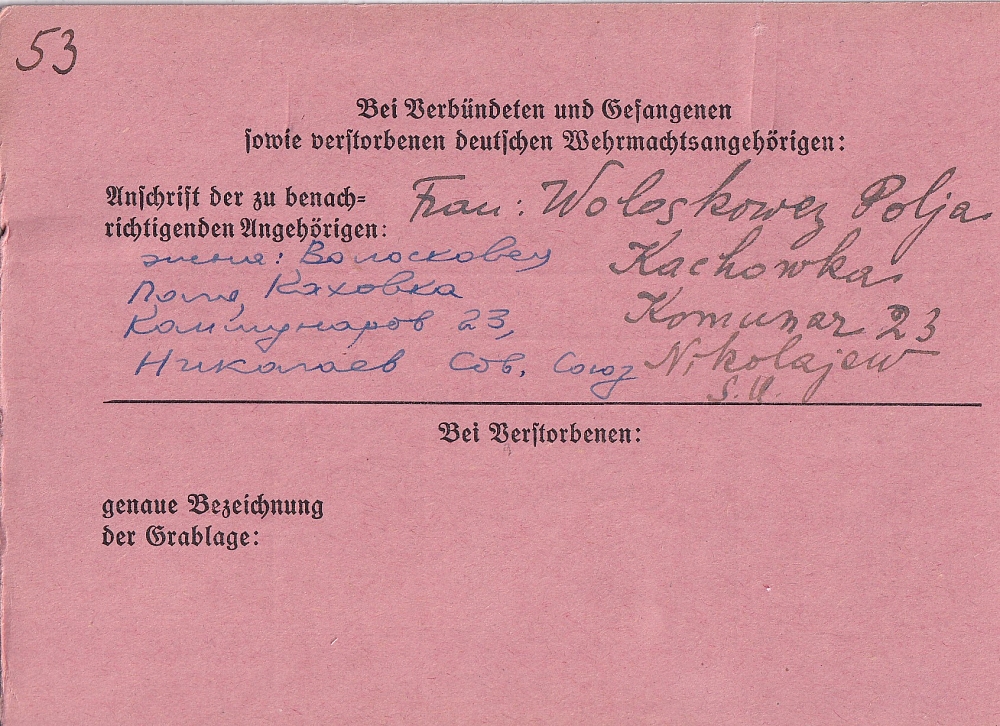 53
Bei Verbündeten und Gefangenen
sowie verstorbenen deutschen Wehrmachtsangehörigen:
Anschrift der zu benach=
richtigenden Angehörigen:
Frau: Woloskowez Polja
Kachowka
Komunar 23
Nikolajew
S.U.
жена: Волосковец
Поля, Каховка
Коммунаров 23,
Николаев Сов. Союз
Bei Verstorbenen:
genaue Bezeichnung
der Grablage: